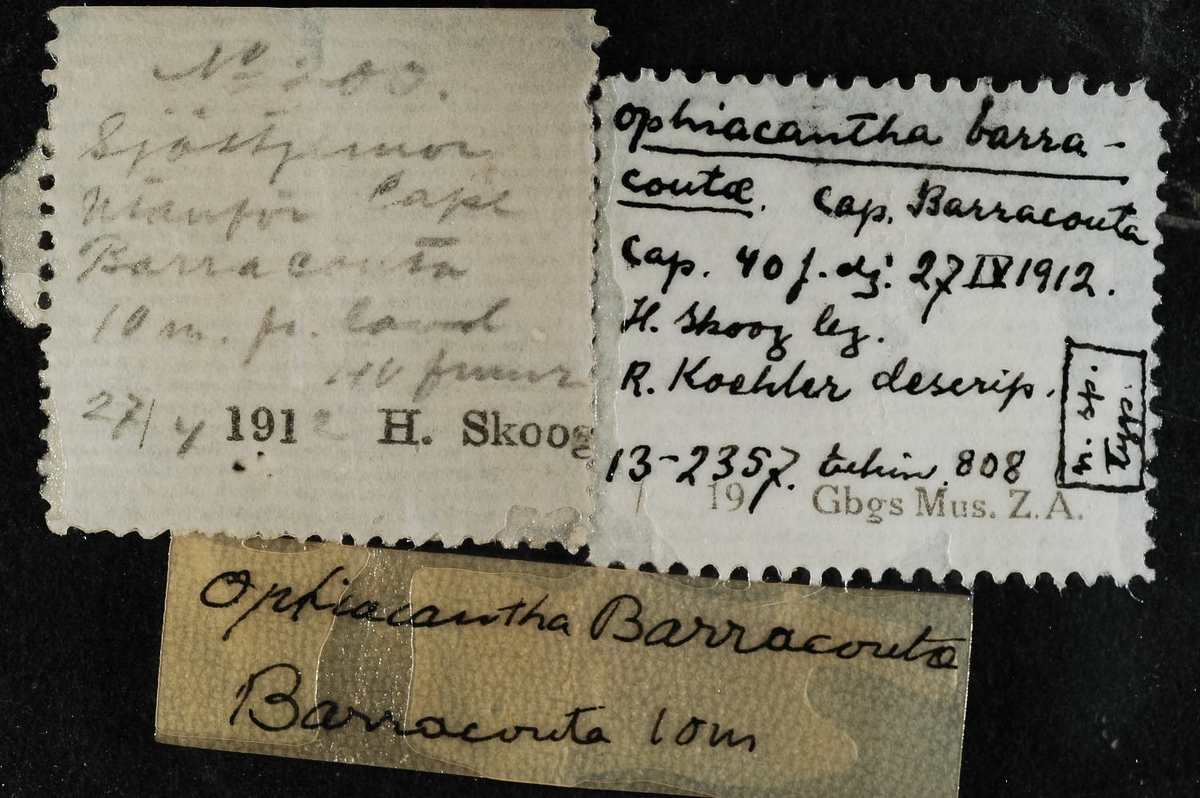 No 203.
Sjöstjernor
Utanför Cape
Barracouta
10 m. fr. land
40 famnr
27/4 1912 H. Skoog
Ophiacantha barra-
coutæ. Cap. Barracouta
Cap. 40 f. dj. 27 IV 1912.
H. Skoog leg.
R. Koehler descrip.
n. sp.
Typ.
13-2357. 808
19 Gbgs Mus. Z.A.
Ophiacantha Barracoutæ
Barracouta 10m